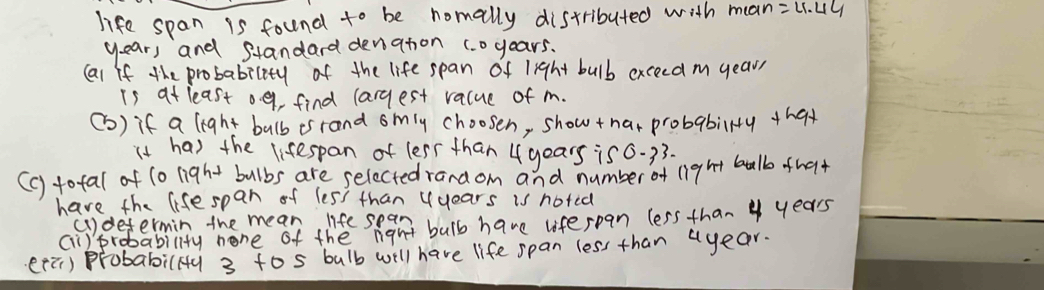 life span is found to be nomally distributed with mean = 4.44
years and standard deviation 1.0 years.
(a) if the probability of the life span of light bulb exceed m years
is at least 0.9, find largest value of m.
(b) if a light bulb is randomly choosen, show that probability that
it has the lifespan of less than 4 years is 0.33.
(c) total of 10 light bulbs are selected random and number of light bulb that
have the life span of less than 4 years is noted
(i) determin the mean life span light bulb have life span less than 4 years
(ii) probability none of the light bulb have life span less than 4 year.
(iii) Probability 3 to 5 bulb will have life span less than 4 year.